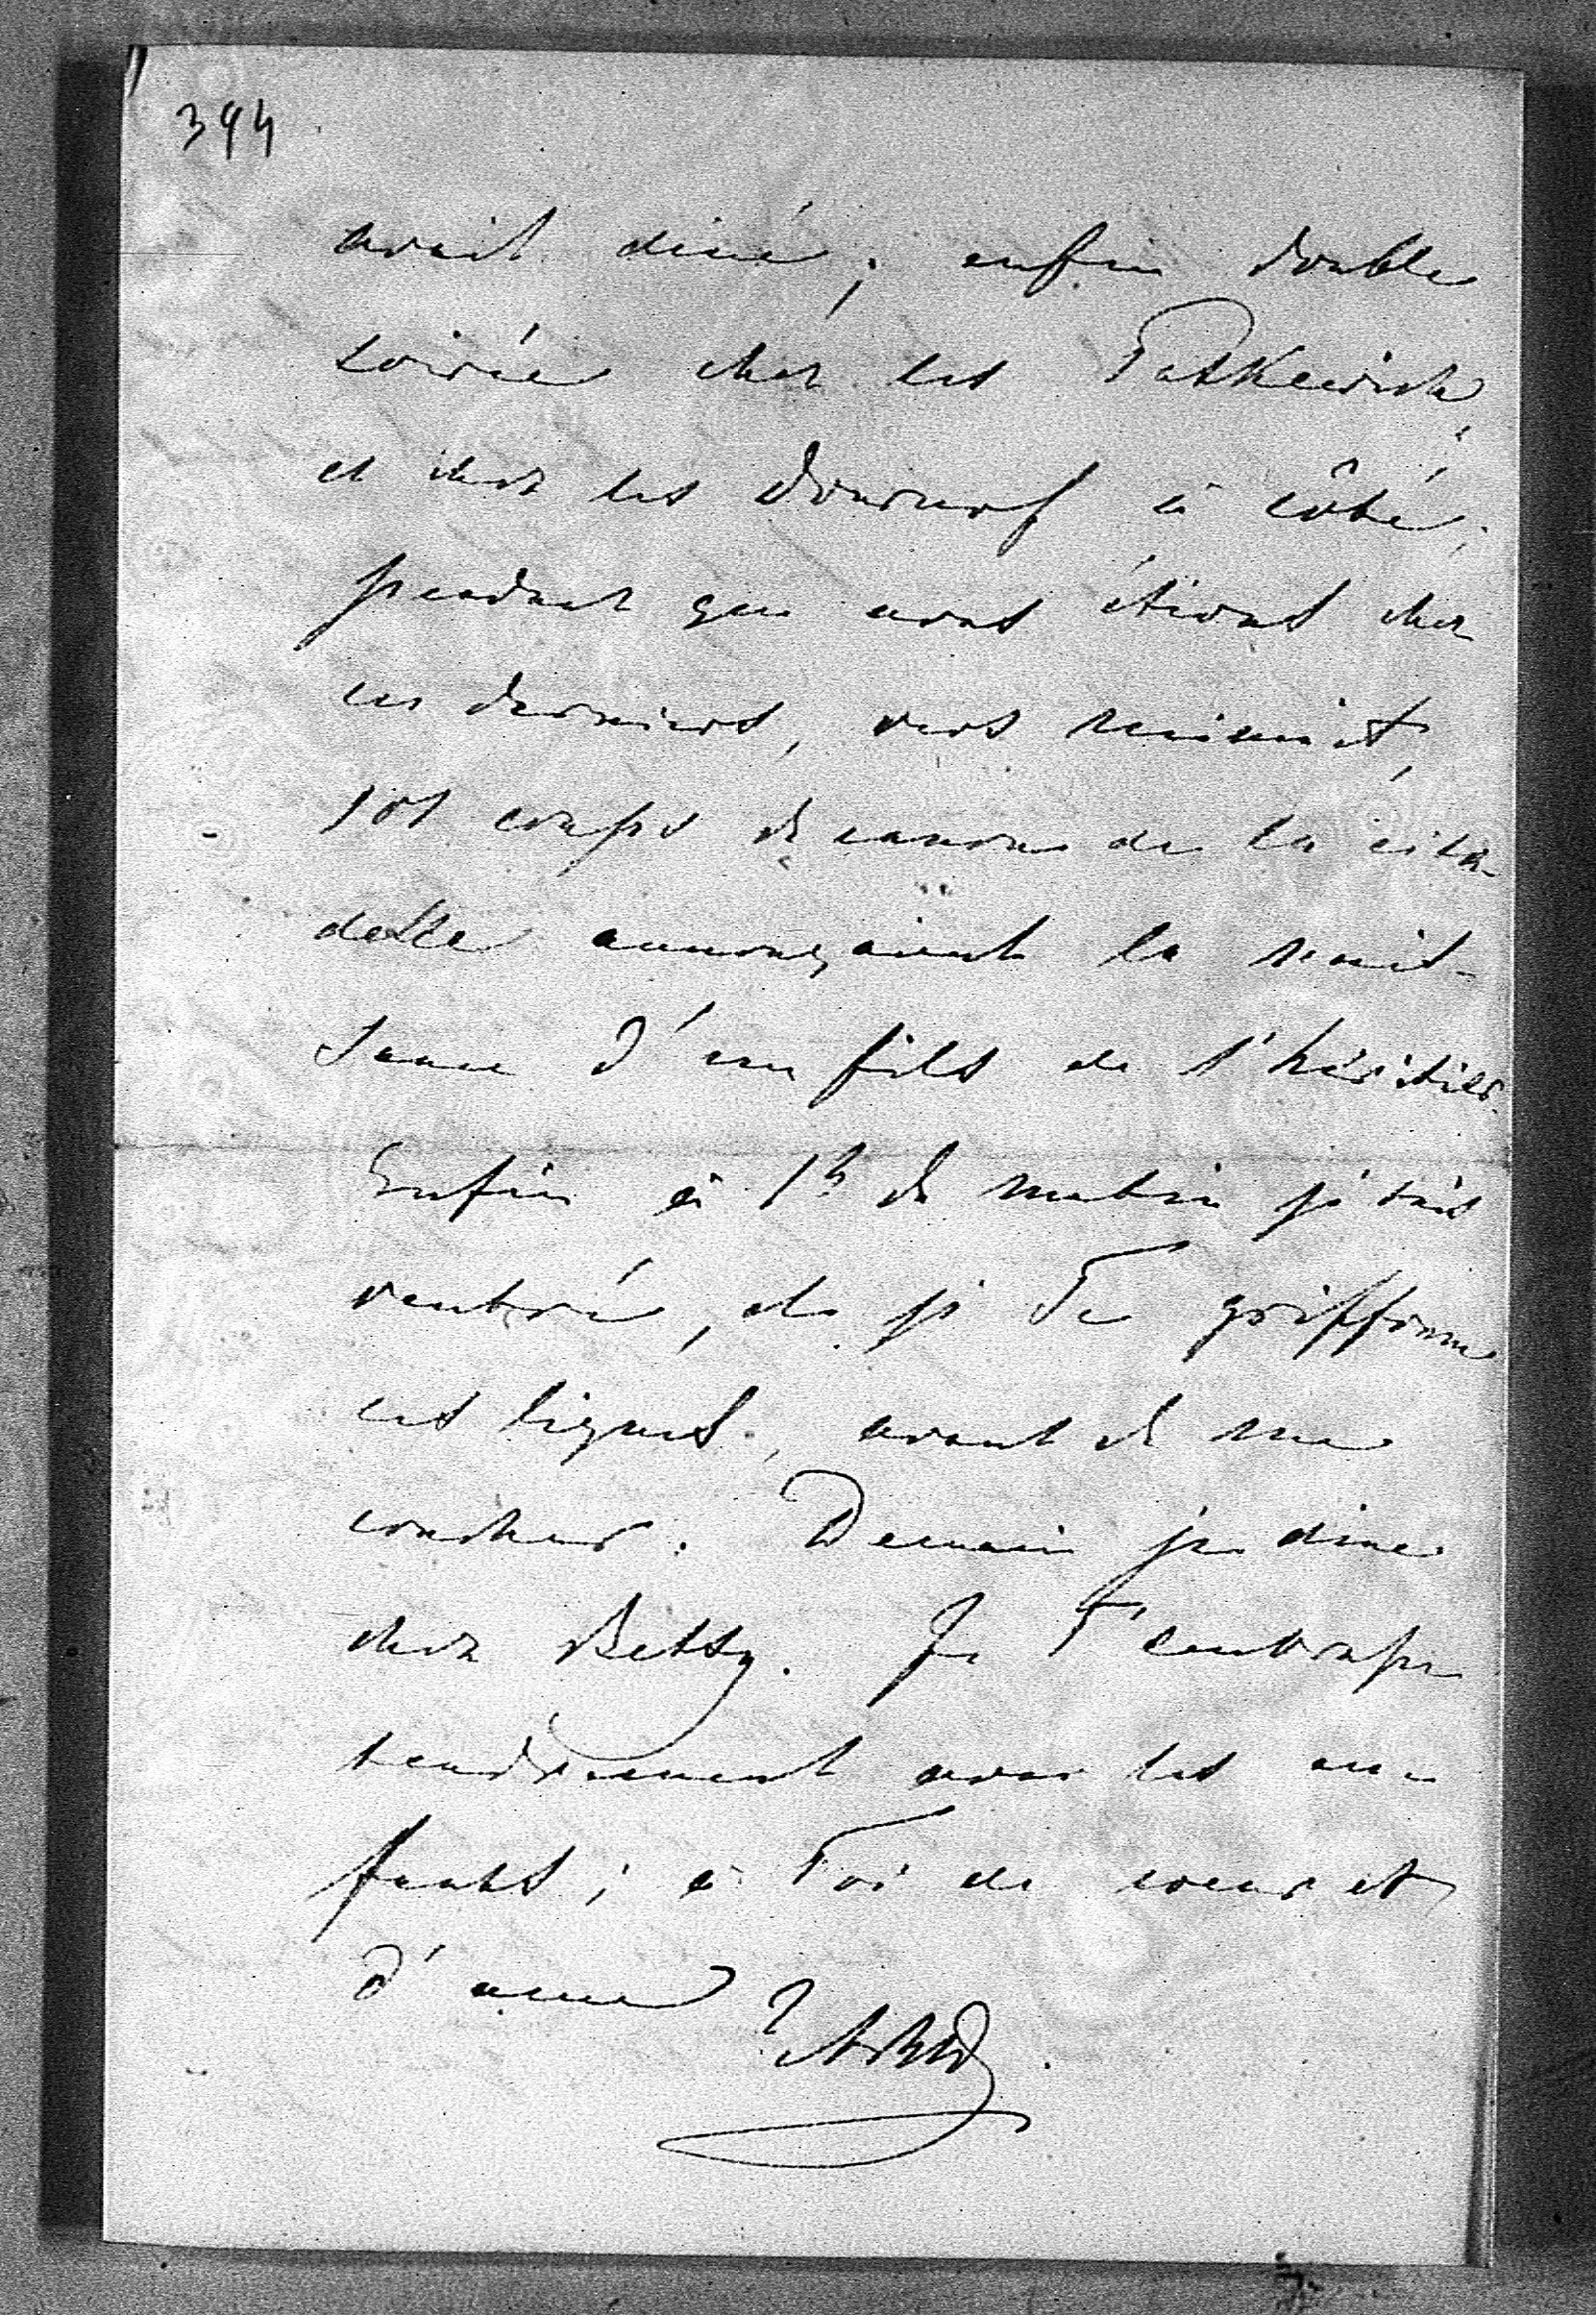 394
avait diné; enfin double
soirée chez les Paskewich,
et chez les Dournof à côté;
pendant que nous étions chez
ces derniers, vers minuit,
101 coups de canon de la cita-
delle annonçaient la nais-
sance d'un fils de l'héritier.
Enfin à 1h du matin je suis
rentré, et je Te griffonne
ces lignes, avant de me
coucher. Demain je dine
chez Betsy. Je T'embrasse
tendrement avec les en-
fants; à Toi de coeur et
d'ame